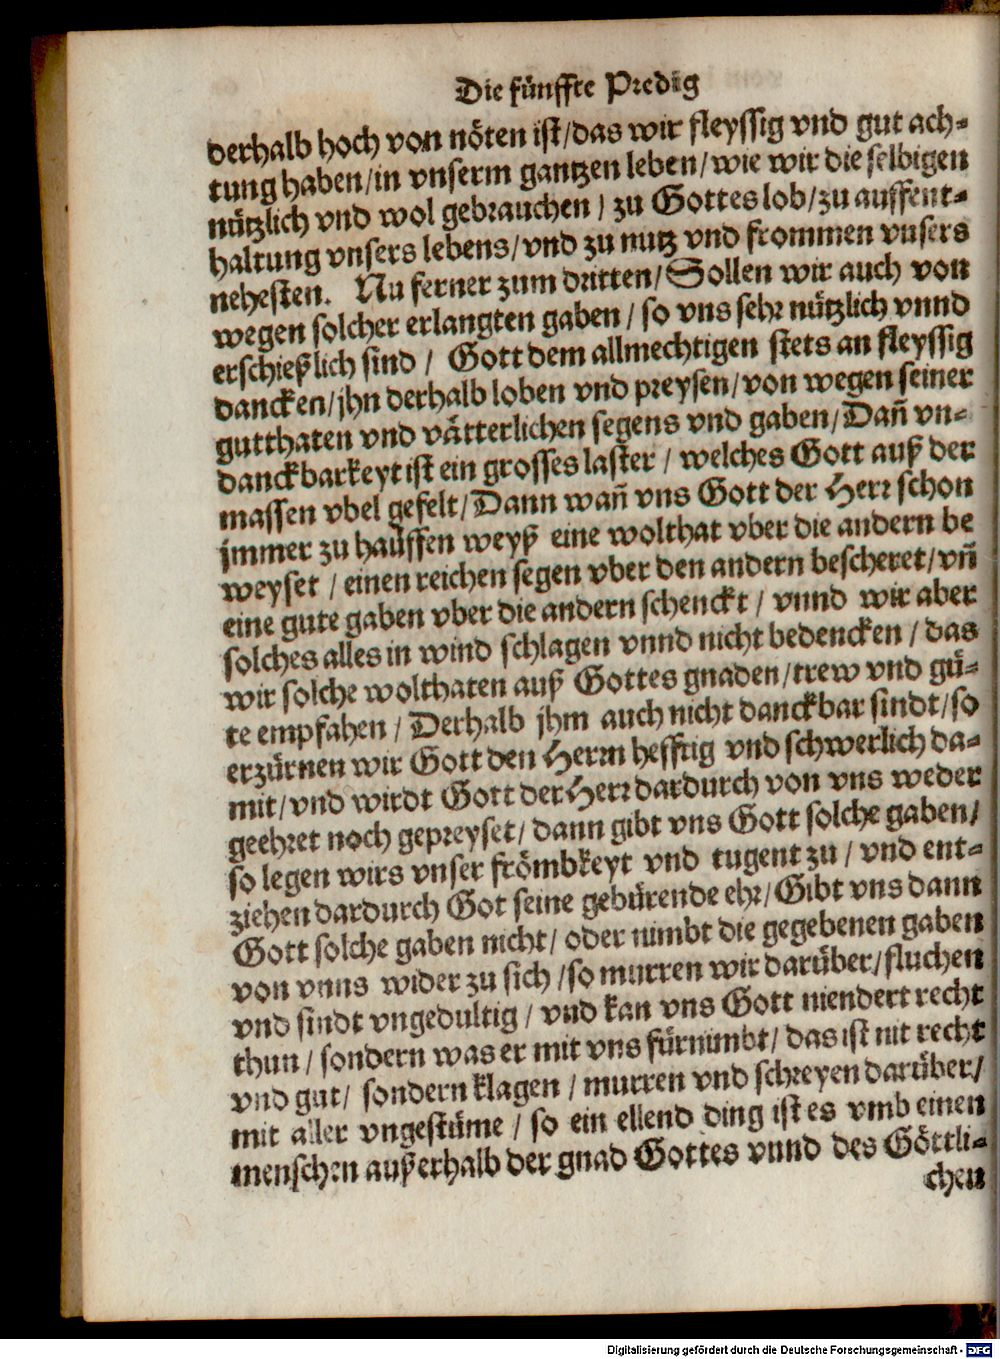 Die fünffte Predig
derhalb hoch von nöten ist/das wir fleyssig vnd gut ach-
tung haben/in vnserm gantzen leben/wie wir die selbigen
nützlich vnd wol gebrauchen/ zu Gottes lob/zu auffent-
haltung vnsers lebens/vnd zu nutz vnd frommen vnsers
nehesten. Nu ferner zum dritten/Sollen wir auch von
wegen solcher erlangten gaben/ so vns sehr nützlich vnnd
erschießlich sind/ Gott dem allmechtigen stets an fleyssig
dancken/jhn derhalb loben vnd preysen/von wegen seiner
gutthaten vnd vätterlichen segens vnd gaben/Dañ vn-
danckbarkeyt ist ein grosses laster/ welches Gott auß der
massen vbel gefelt/Dann wañ vns Gott der Herr schon
jmmer zu hauffen weyß eine wolthat vber die andern be
weyset/einen reichen segen vber den andern bescheret/vñ
eine gute gaben vber die andern schenckt/ vnnd wir aber
solches alles in wind schlagen vnnd nicht bedencken/das
wir solche wolthaten auß Gottes gnaden/trew vnd gü-
te empfahen/Derhalb jhm auch nicht danckbar sindt/so
erzürnen wir Gott den Herrn hefftig vnd schwerlich da-
mit/vnd wirdt Gott der Herr dardurch von vns weder
geehret noch gepreyset/dann gibt vns Gott solche gaben/
so legen wirs vnser frömbkeyt vnd tugent zu/ vnd ent-
ziehen dardurch Got seine gebürende ehr/Gibt vns dann
Gott solche gaben nicht/oder nimbt die gegebenen gaben
von vnns wider zu sich/so murren wir darüber/fluchen
vnd sindt vngedultig/ vnd kan vns Gott niendert recht
thun/sondern was er mit vns fürnimbt/das ist nit recht
vnd gut/ sondern klagen/murren vnd schreyen darüber/
mit aller vngestüme/ so ein ellend ding ist es vmb einen
menschen außerhalb der gnad Gottes vnnd des Göttli-
chen
Digitalisierung gefördert durch die Deutsche Forschungsgemeinschaft - DFG